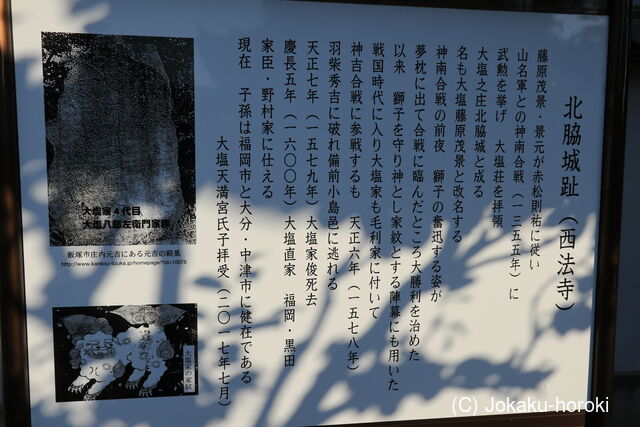 北脇城趾(西法寺)
藤原茂景・景元が赤松則祐に従い
山名軍との神南合戦(一三五五年)に
武勲を挙げ 大塩荘を拝領
大塩之庄北脇城と成る
名も大塩藤原茂景と改名する
神南合戦の前夜 獅子の奮迅する姿が
夢枕に出て合戦に臨んだところ大勝利を治めた
以来 獅子を守り神とし家紋とする陣幕にも用いた
戦国時代に入り大塩家も毛利家に付いて
神吉合戦に参戦するも 天正六年(一五七八年)
羽柴秀吉に破れ備前小島邑に逃れる
天正七年(一五七九年)大塩家俊死去
慶長五年(一六〇〇年)大塩直家 福岡・黒田
家臣・野村家に仕える
現在 子孫は福岡市と大分・中津市に健在である
大塩天満宮氏子拝受(二〇一七年七月)
大塩家4代目
大塩八郎左衛門家
飯塚市庄内元吉にある元吉の殿墓
http://www.kankou-iizuka.jp/homepage/?id=10075
大塩家の家紋
(C) Jokaku-horoki